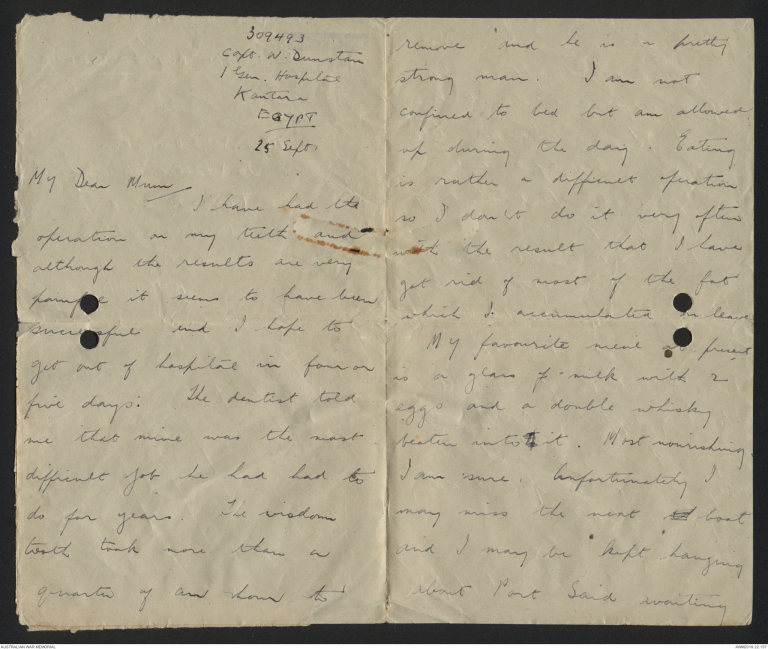 309493
Capt. W. Dunstan
1 Gen. Hospital
Kantara
EGYPT
25 Sept.
My Dear Mum
I have had the
operation on my teeth and
although the results are very
painful it seems to have been
successful and I hope to
get out of hospital in four or
five days. The dentist told
me that mine was the most
difficult job he had had to
do for years. The wisdom
tooth took more than a
quarter of an hour to
remove and he is a pretty
strong man. I am not
confined to bed but am allowed
up during the day. Eating
is rather a difficult operation
so I don't do it very often
with the result that I have
got rid of most of the fat
which I accumulated on leave
My favourite meal at present
is a glass of milk with 2
eggs and a double whisky
beaten into it. Most nourishing
I am sure. Unfortunately I
may miss the next boat
and I may be kept hanging
about Port Said awaiting
AUSTRALIAN WAR MEMORIAL